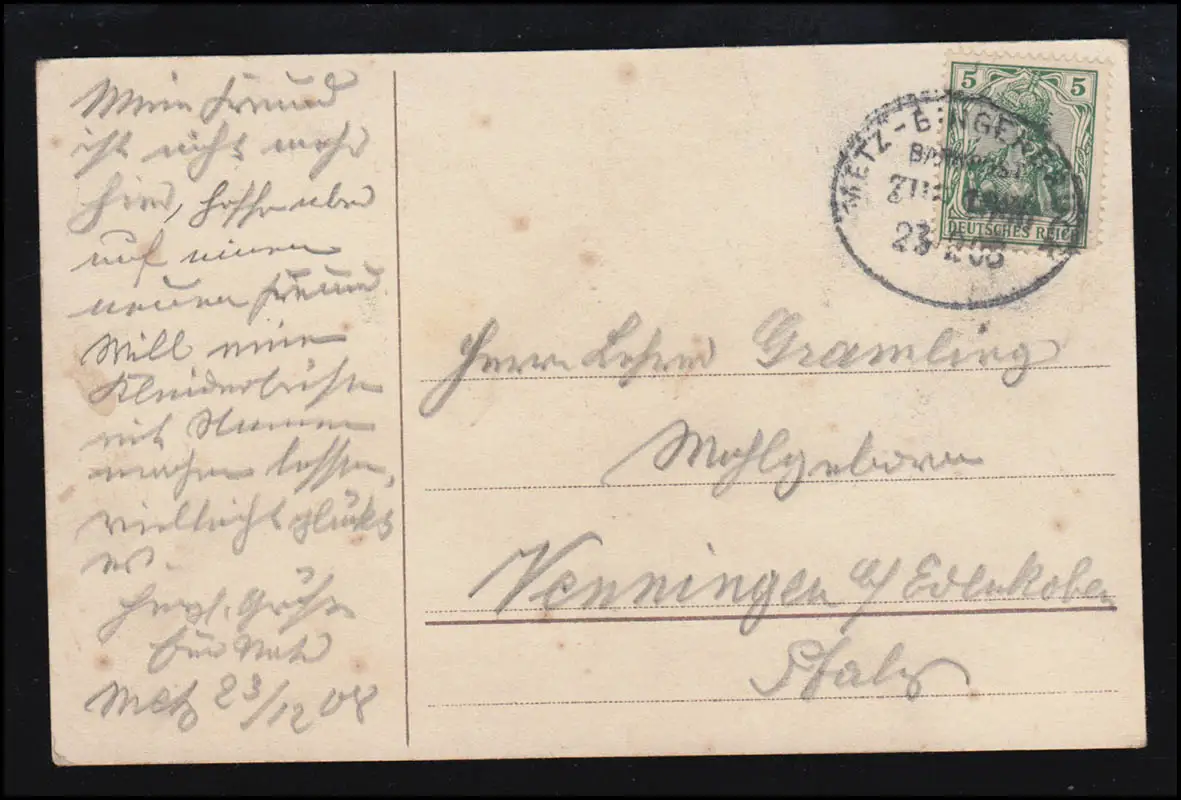 Mein Freund
ist nicht mehr
hier, hoffe aber
auf einen
neuen Freund.
Will eine
Kleiderbürste
mit Namen
machen lassen,
vielleicht glückt
es.
Herzl. Grüße
Metz 23/12 08
5 5
DEUTSCHES REICH
METZ-BINGERBRÜCK
BAHNPOST
ZUG
23 12 08
Herrn Lehrer Gramling
Wohlgeboren
Venningen b/ Edenkoben
Pfalz